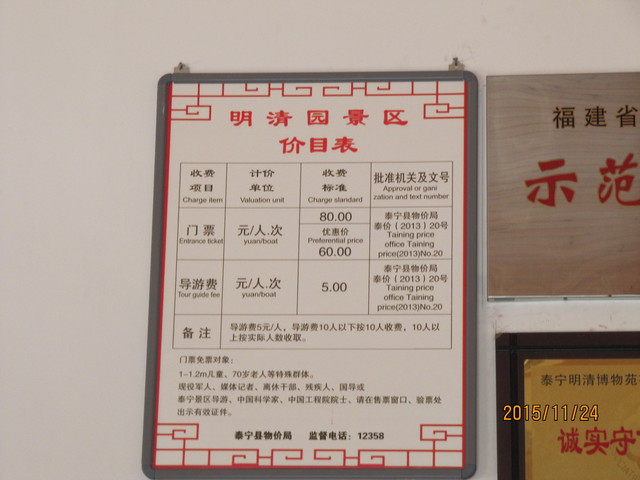 明清园景区
价目表
收费
项目
Charge item
计价
单位
Valuation unit
收费
标准
Charge standard
批准机关及文号
Approval or gani
zation and text number
门票
Entrance ticket
元/人.次
yuan/boat
80.00
优惠价
Preferential price
60.00
泰宁县物价局
泰价{2013}20号
Taining price
office Taining
price(2013)No.20
导游费
Tour guide fee
元/人.次
yuan/boat
5.00
泰宁县物价局
泰价{2013}20号
Taining price
office Taining
price(2013)No.20
备注
导游费5元/人，导游费10人以下按10人收费，10人以
上按实际人数收取。
门票免票对象：
1-1.2m儿童、70岁老人等特殊群体。
现役军人、媒体记者、离休干部、残疾人、国导或
泰宁景区导游、中国科学家、中国工程院院士、请在售票窗口、验票处
出示有效证件。
泰宁县物价局 监督电话：12358
福建省
示范
泰宁明清博物苑
诚实守
2015/11/24